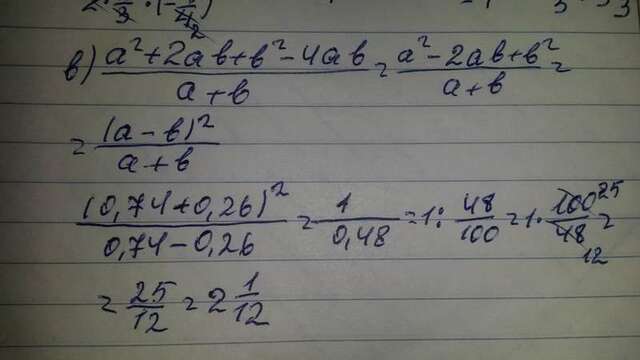 2·1/3·(-1/4)
в) (a²+2ab+b²-4ab)/(a+b) = (a²-2ab+b²)/(a+b) =
= (a-b)²/(a+b)
(0,74+0,26)²/(0,74-0,26) = 1/0,48 = 1:48/100 = 1·100/48 25/12 =
= 25/12 = 2 1/12